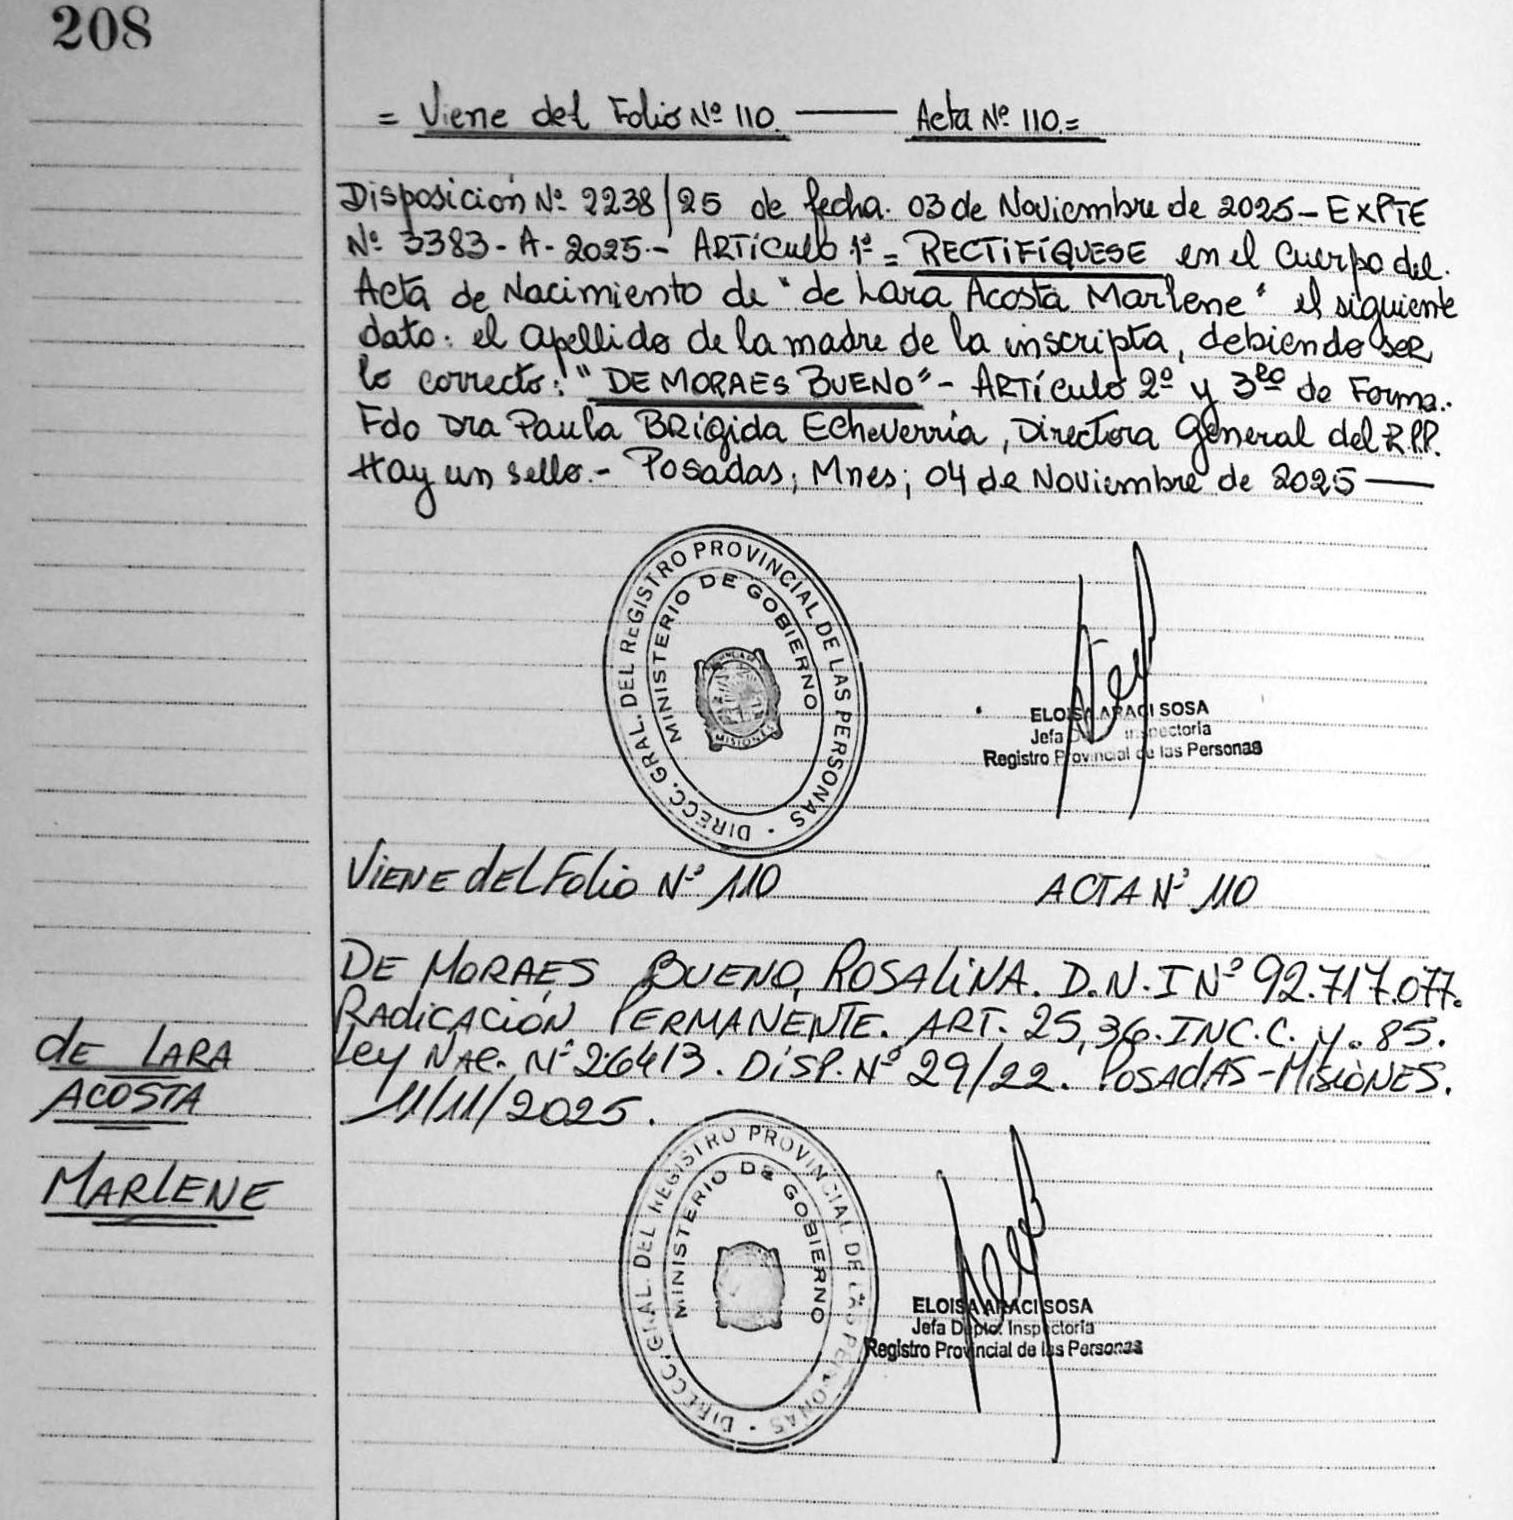 208
= Viene del Folio Nº 110. —— Acta Nº 110.=
Disposición Nº 2238/25 de fecha. 03 de Noviembre de 2025 - EXPTE
Nº 3383 - A - 2025.- ARTículo 1º = RECTIFÍQUESE en el Cuerpo del.
Acta de Nacimiento de "de Lara Acosta Marlene" el siguiente
dato: el apellido de la madre de la inscripta, debiendo ser
lo correcto: "DE MORAES BUENO" - ARTículo 2º y 3ero de Forma.
Fdo Dra Paula BRígida Echeverría, Directora General del R.P.P.
Hay un sello.- Posadas; Mnes; 04 de Noviembre de 2025 ——
DIRECC. GRAL. DEL REGISTRO PROVINCIAL DE LAS PERSONAS
MINISTERIO DE GOBIERNO
MISIONES
ELOISA ARACI SOSA
Jefa Inspectoria
Registro Provincial de las Personas
VIENE del Folio Nº 110 ACTA Nº 110
DE MORAES BUENO, ROSALiNA. D.N.I Nº 92.717.077.
RAdiCACión PERMANENTE. ART. 25, 36. INC. C. y. 85.
Ley NAC. Nº 26413. DiSP. Nº 29/22. POSAdAS - MiSiONES.
11/11/2025.
de LARA
ACOSTA
MARLENE
DIRECC. GRAL. DEL REGISTRO PROVINCIAL DE LAS PERSONAS
MINISTERIO DE GOBIERNO
ELOISA ARACI SOSA
Jefa Dpto. Inspectoria
Registro Provincial de las Personas